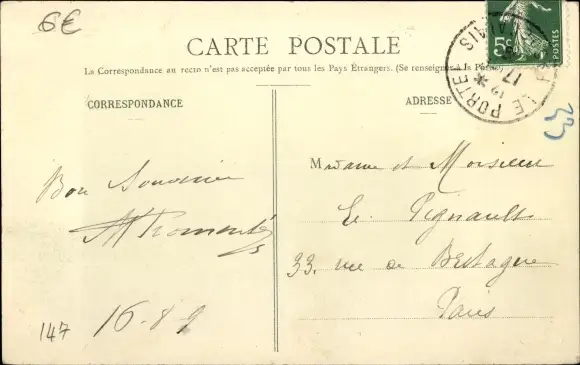 6€
CARTE POSTALE
La Correspondance au recto n'est pas acceptée par tous les Pays Étrangers. (Se renseigner à la Poste)
CORRESPONDANCE
ADRESSE
5c
POSTES
LE PORTEL
CALAIS
12
17
Bon Souvenir
16-8 9
147
Madame et Monsieur
E. Pignault
33. rue de Bretagne
Paris